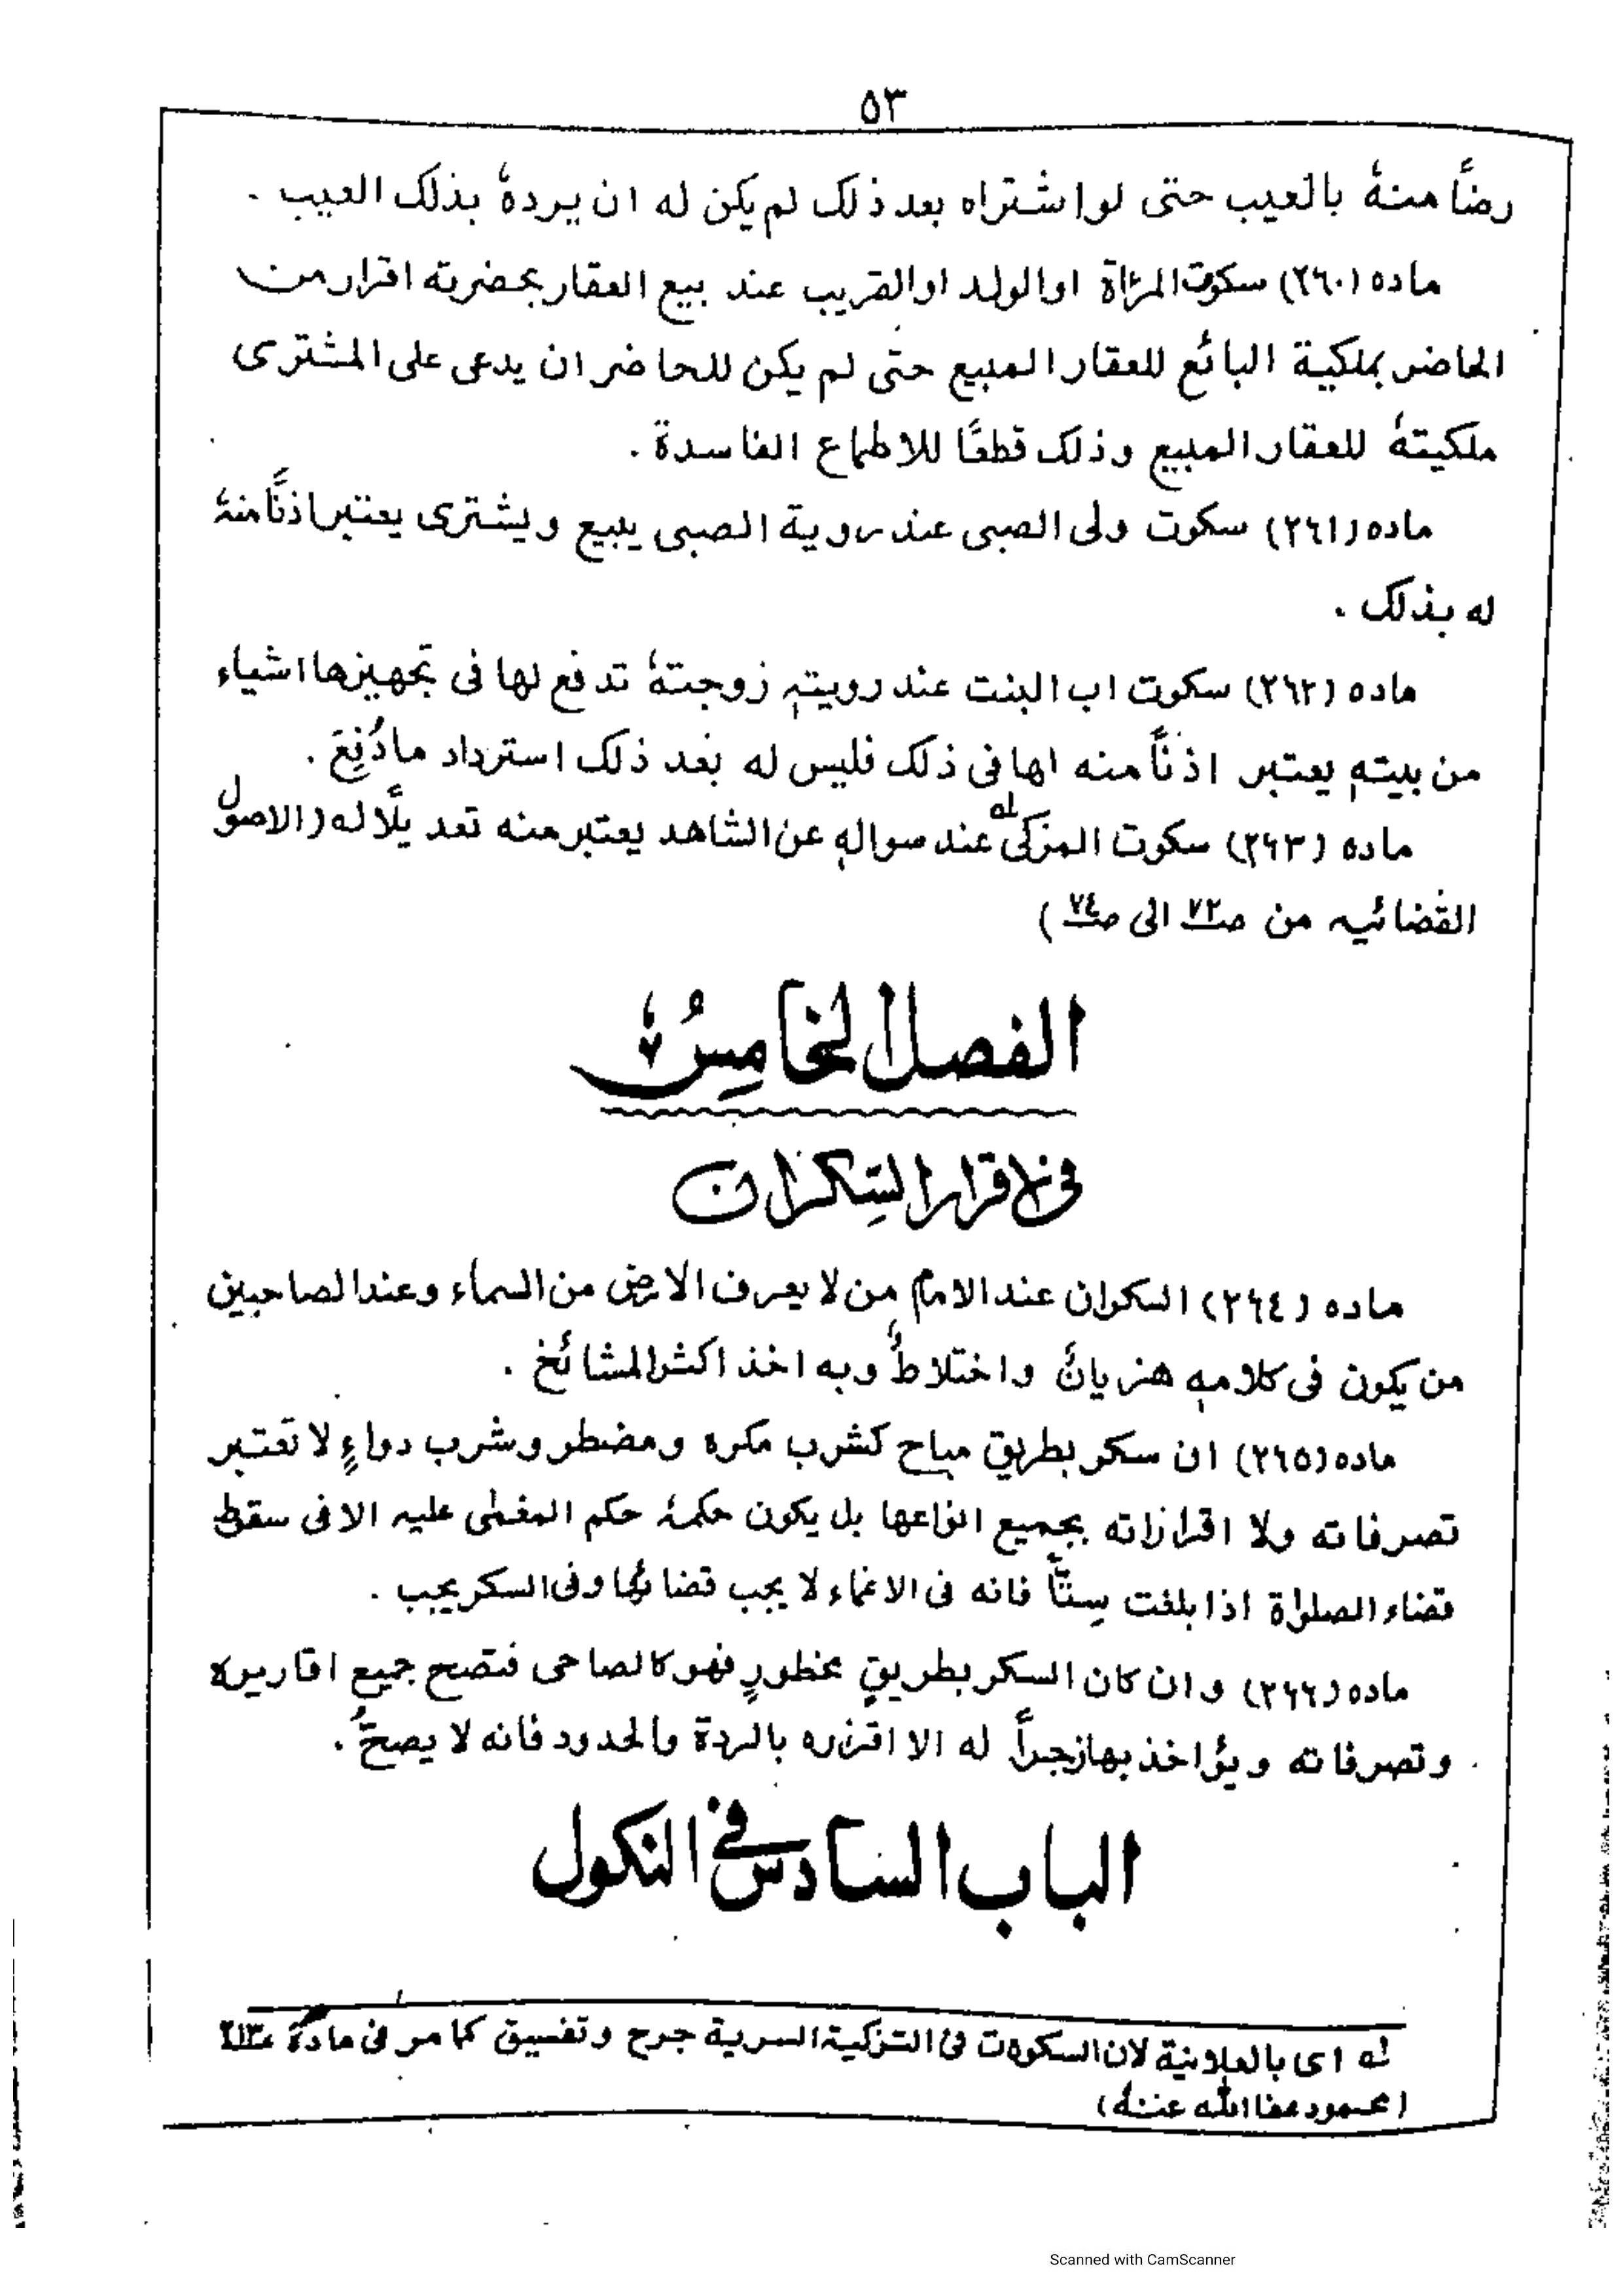 ٥٣
رضًا منهُ بالعيب حتى لو اشتراه بعد ذلك لم يكن له ان يردهُ بذلك العيب .
ماده (٢٦٠) سكوت المرأة او الولد او القريب عند بيع العقار بحضرته اقرار من
الحاضر بملكية البائع للعقار المبيع حتى لم يكن للحاضر ان يدعى على المشترى
ملكيتهُ للعقار المبيع وذلك قطعًا للاطماع الفاسدة .
ماده (٢٦١) سكوت ولى الصبى عند روية الصبى يبيع ويشترى يعتبر اذنًا منهُ
له بذلك .
ماده (٢٦٢) سكوت اب البنت عند رويتهٖ زوجتهُ تدفع لها فى تجهيزها اشياء
من بيتهٖ يعتبر اذنًا منه لها فى ذلك فليس له بعد ذلك استرداد مادُفِعَ .
ماده (٢٦٣) سكوت المزكى له عند سوالهٖ عن الشاهد يعتبر منه تعديلًا له (الاصول
القضائيه من صـ٧٢ الى صـ٧٤ )
الفصل الخامسُ
فى الاقرار السكران
ماده (٢٦٤) السكران عند الامام من لا يعرف الارض من السماء وعند الصاحبين
من يكون فى كلامهٖ هزيانٌ واختلاطٌ وبه اخذ اكثر المشائخ .
ماده (٢٦٥) ان سكر بطريق مباح كشرب مكره ومضطر وشرب دواءٍ لا تعتبر
تصرفاته ولا اقراراته بجميع انواعها بل يكون حكمهُ حكم المغمٰى عليه الا فى سقط
قضاء الصلوٰة اذا بلغت سِتًّا فانه فى الاغماء لا يجب قضائها وفى السكر يجب .
ماده (٢٦٦) وان كان السكر بطريقٍ محظورٍ فهو كالصاحى فتصح جميع اقاريره
وتصرفاته ويؤاخذ بها زجراً له الا اقراره بالردة والحدود فانه لا يصحُّ .
الباب السادس فى النكول
له اى بالعلانية لان السكوت فى التزكية السرية جرح وتفسيق كما مر فى مادة
(محمود عفا الله عنه)
Scanned with CamScanner